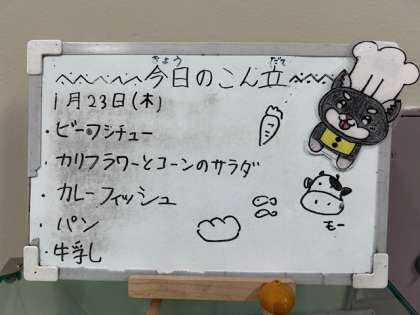 きょう だて
今日のこん立
1月23日(木)
・ビーフシチュー
・カリフラワーとコーンのサラダ
・カレーフィッシュ
・パン
・牛乳し
モー